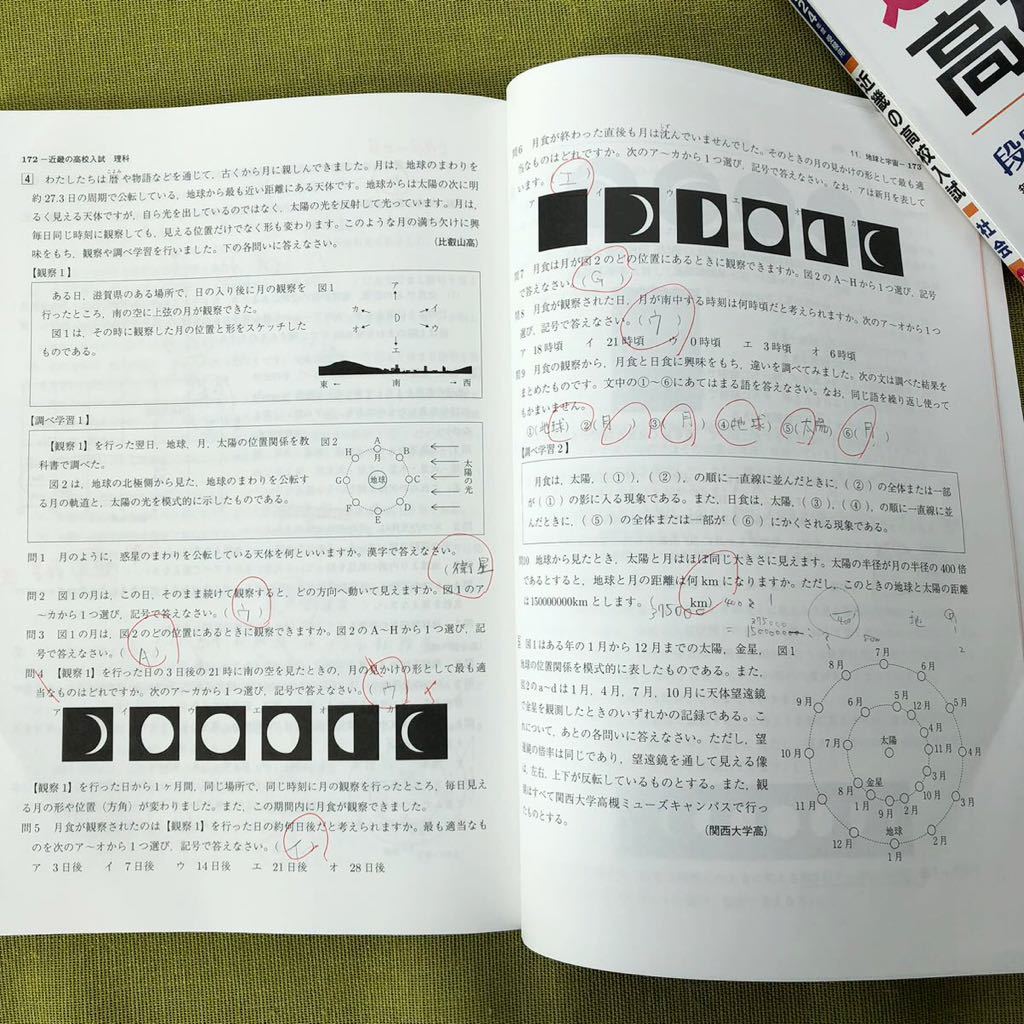 172－近畿の高校入試 理科
4 わたしたちは暦や物語などを通じて，古くから月に親しんできました。月は，地球のまわりを
こよみ
約27.3日の周期で公転している，地球から最も近い距離にある天体です。地球からは太陽の次に明
るく見える天体ですが，自ら光を出しているのではなく，太陽の光を反射して光っています。月は，
毎日同じ時刻に観察しても，見える位置だけでなく形も変わります。このような月の満ち欠けに興
味をもち，観察や調べ学習を行いました。下の各問いに答えなさい。
（比叡山高）
【観察1】
ある日，滋賀県のある場所で，日の入り後に月の観察を
行ったところ，南の空に上弦の月が観察できた。
図1は，その時に観察した月の位置と形をスケッチした
ものである。
図1
ア
カ イ
D
オ ウ
エ
東 ← 南 → 西
【調べ学習1】
【観察1】を行った翌日，地球，月，太陽の位置関係を教
科書で調べた。
図2は，地球の北極側から見た，地球のまわりを公転す
る月の軌道と，太陽の光を模式的に示したものである。
図2
A
月
H B
G 地球 C
F D
E
太陽の光
問1 月のように，惑星のまわりを公転している天体を何といいますか。漢字で答えなさい。
（衛星
問2 図1の月は，この日，そのまま続けて観察すると，どの方向へ動いて見えますか。図1のア
～カから1つ選び，記号で答えなさい。（ ウ ）
問3 図1の月は，図2のどの位置にあるときに観察できますか。図2のA～Hから1つ選び，記
号で答えなさい。（ A ）
問4 【観察1】を行った日の3日後の21時に南の空を見たときの，月の見かけの形として最も適
当なものはどれですか。次のア～カから1つ選び，記号で答えなさい。（ ウ ）
ア イ ウ エ オ カ
【観察1】を行った日から1ヶ月間，同じ場所で，同じ時刻に月の観察を行ったところ，毎日見え
る月の形や位置（方角）が変わりました。また，この期間内に月食が観察できました。
問5 月食が観察されたのは【観察1】を行った日の約何日後だと考えられますか。最も適当なも
のを次のア～オから1つ選び，記号で答えなさい。（ イ ）
ア 3日後 イ 7日後 ウ 14日後 エ 21日後 オ 28日後
11．地球と宇宙－173
問6 月食が終わった直後も月は沈んでいませんでした。そのときの月の見かけの形として最も適
しず
当なものはどれですか。次のア～カから1つ選び，記号で答えなさい。なお，アは新月を表して
います。（ エ ）
ア イ ウ エ オ カ
問7 月食は月が図2のどの位置にあるときに観察できますか。図2のA～Hから1つ選び，記号
で答えなさい。（ G ）
問8 月食が観察された日，月が南中する時刻は何時頃だと考えられますか。次のア～オから1つ
選び，記号で答えなさい。（ ウ ）
ア 18時頃 イ 21時頃 ウ 0時頃 エ 3時頃 オ 6時頃
問9 月食の観察から，月食と日食に興味をもち，違いを調べてみました。次の文は調べた結果を
まとめたものです。文中の①～⑥にあてはまる語を答えなさい。なお，同じ語を繰り返し使って
もかまいません。
①（地球）②（月）③（月）④（地球）⑤（太陽）⑥（月）
【調べ学習2】
月食は，太陽，（①），（②），の順に一直線に並んだときに，（②）の全体または一部
が（①）の影に入る現象である。また，日食は，太陽，（③），（④），の順に一直線に並
んだときに，（⑤）の全体または一部が（⑥）にかくされる現象である。
問10 地球から見たとき，太陽と月はほぼ同じ大きさに見えます。太陽の半径が月の半径の400倍
であるとすると，地球と月の距離は何kmになりますか。ただし，このときの地球と太陽の距離
は150000000kmとします。（375000 km）
図1はある年の1月から12月までの太陽，金星，
地球の位置関係を模式的に表したものである。また，
図2のa～dは1月，4月，7月，10月に天体望遠鏡
で金星を観測したときのいずれかの記録である。こ
れについて，あとの各問いに答えなさい。ただし，望
遠鏡の倍率は同じであり，望遠鏡を通して見える像
は，左右，上下が反転しているものとする。また，観
測はすべて関西大学高槻ミューズキャンパスで行っ
たものとする。
（関西大学高）
図1
7月
8月 6月
9月 6月 5月 12月 5月
7月 4月
太陽
10月 10月 11月 4月
金星 3月
8月 2月
11月 1月 9月 3月
12月 地球 2月
1月
近畿の高校入試 社会
高